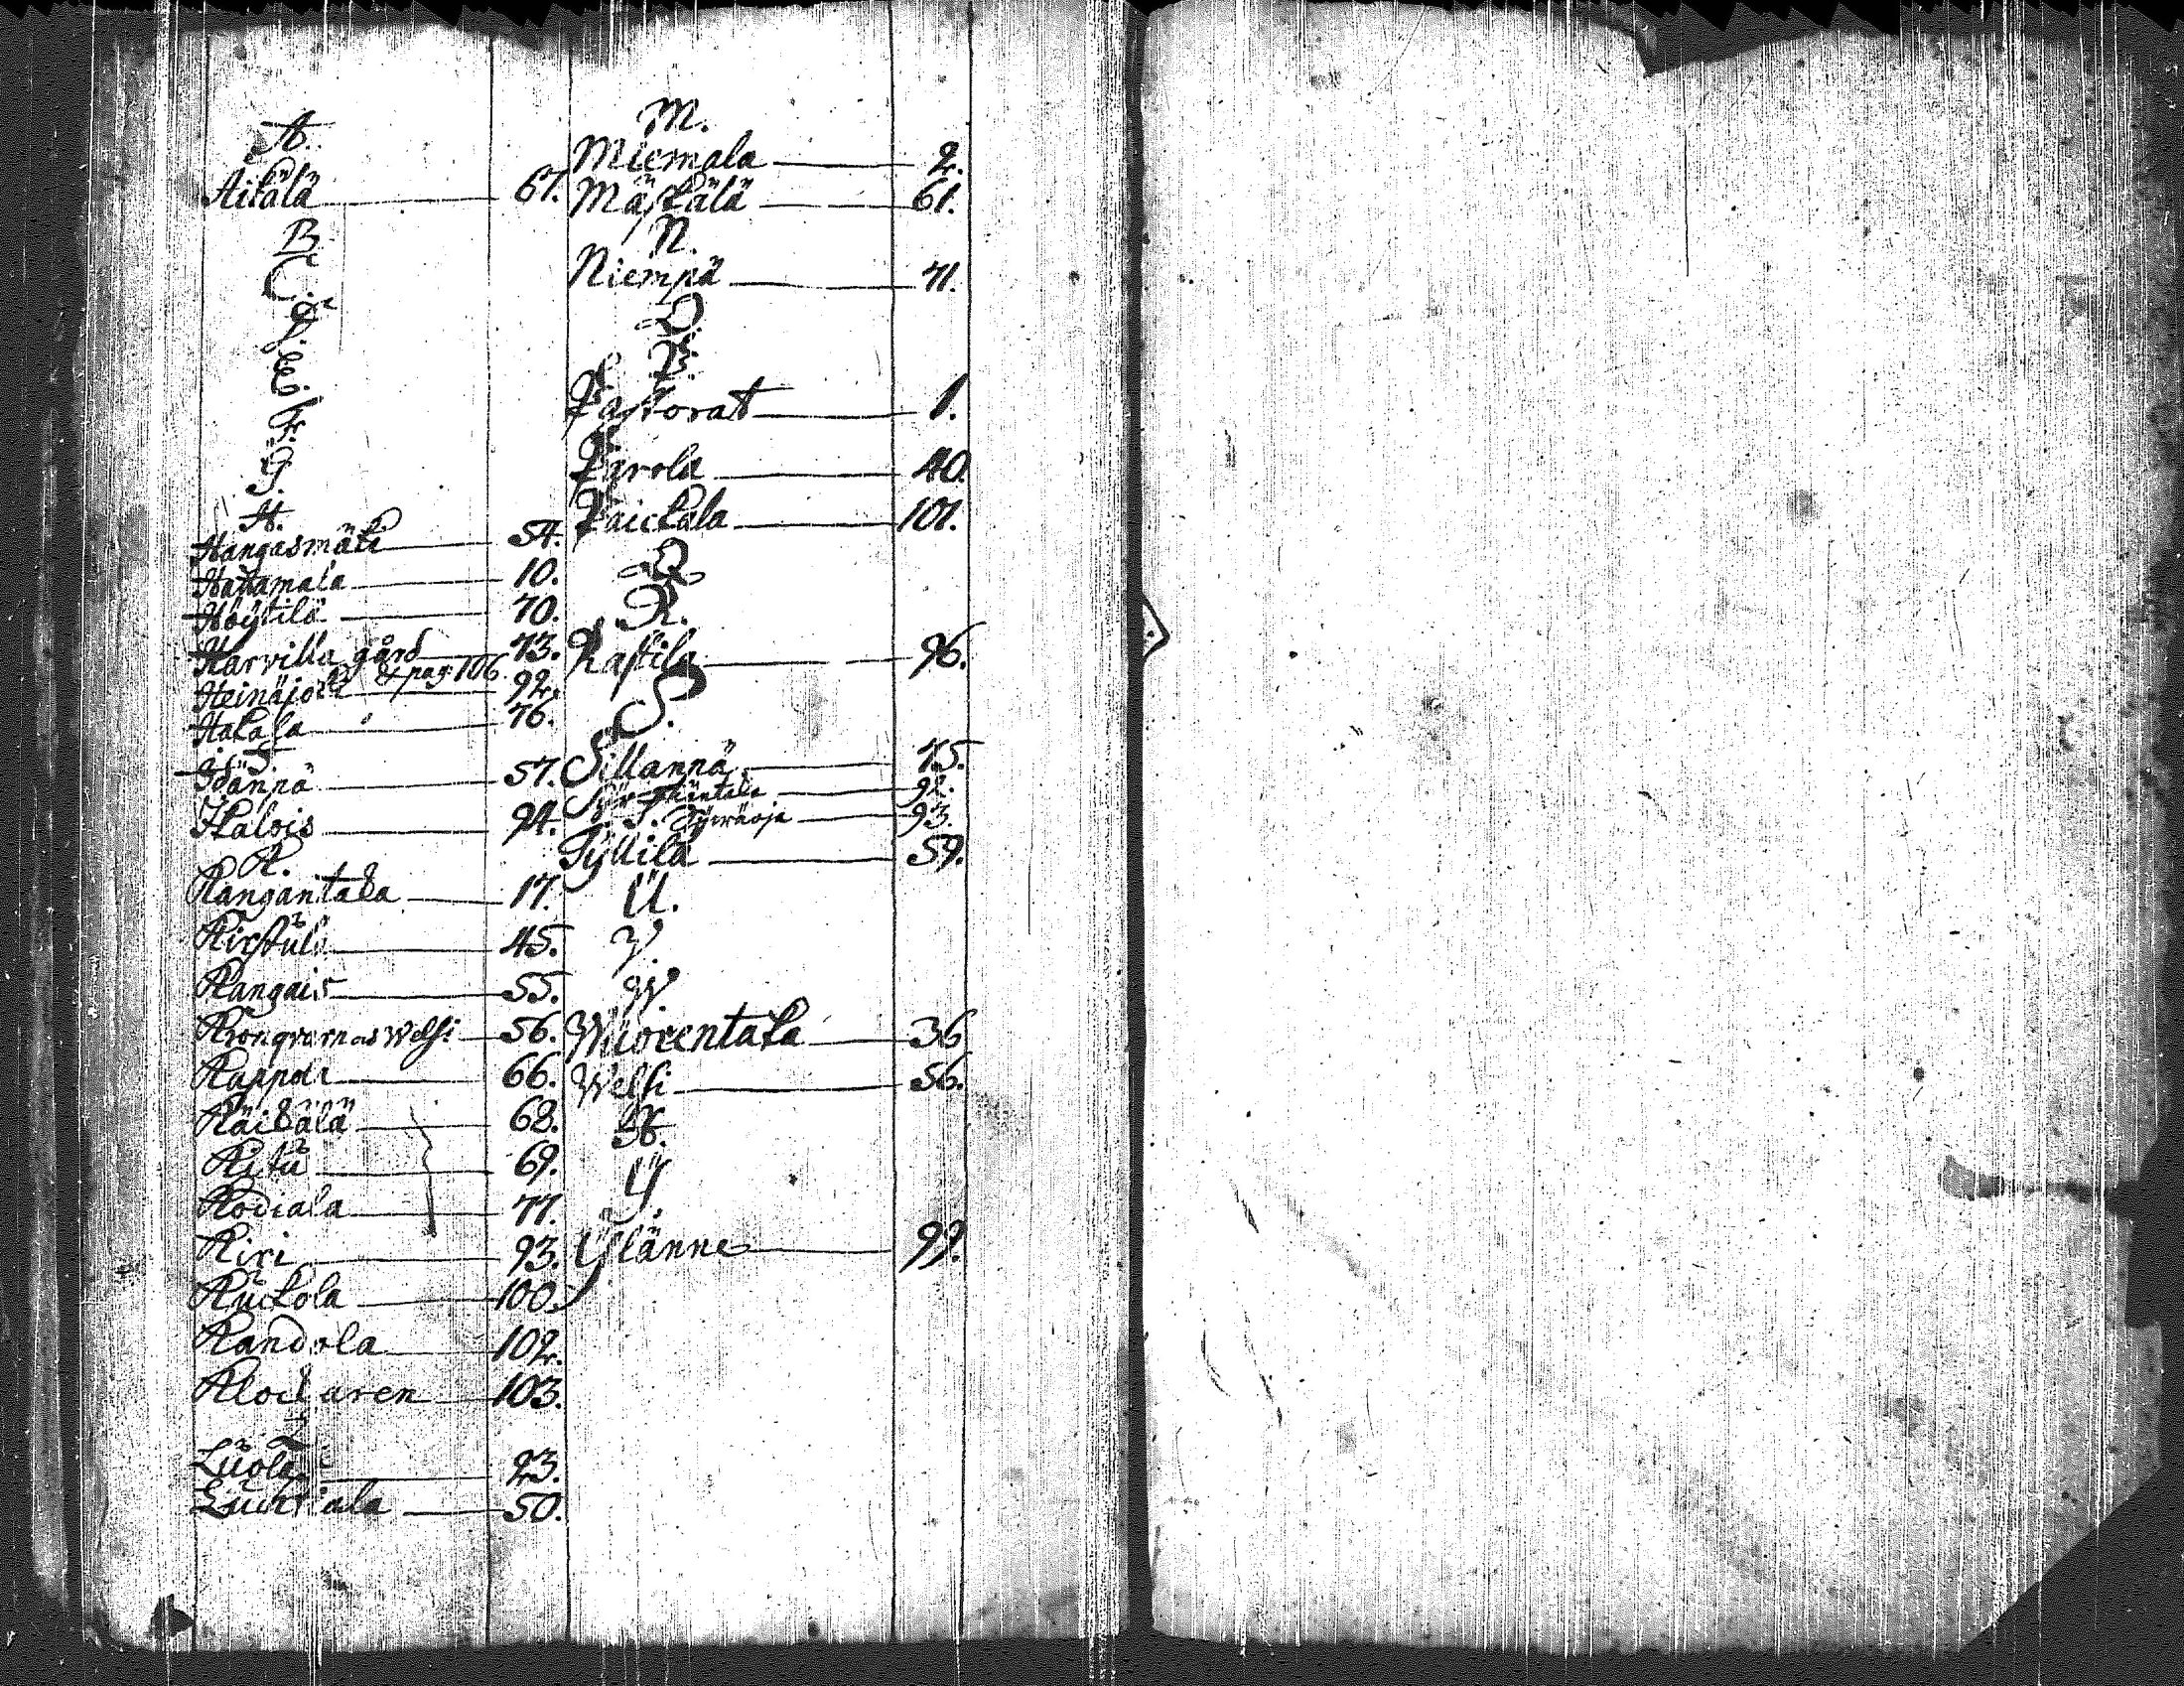 A.
Äikälä 67.
B.
C.
D.
E.
F.
G.
H.
Hangasmäki 54.
Hattamala 10.
Höÿtilä 70.
Harvilla gård 73.
Heinäjoki & pag. 106. 92.
Hakala 76.
I.
Idänpä 57.
Ilalois 94.
K.
Kangantaka 17.
Kirstula 45.
Kangais 55.
Kronqvarn as Welsi 56.
Kappola 66.
Käikälä 68.
Kitu 69.
Kodiala 77.
Kiri 93.
Kuckola 100.
Kandola 102.
Klockaren 103.
L.
Luola 23.
Luhtiala 50.
M.
Miemala 2.
Mäskälä 61.
N.
Niempä 71.
O.
P.
Pastorat 1.
Parola 40.
Paickala 101.
Q.
R.
Rastila 96.
S.
Sillanpä 75.
92.
T. Tyyräoja 93.
Tÿllilä 59.
U.
V.
W.
Wuorentaka 36
Welsi 56.
X.
Ÿ.
Ÿlänne 99.